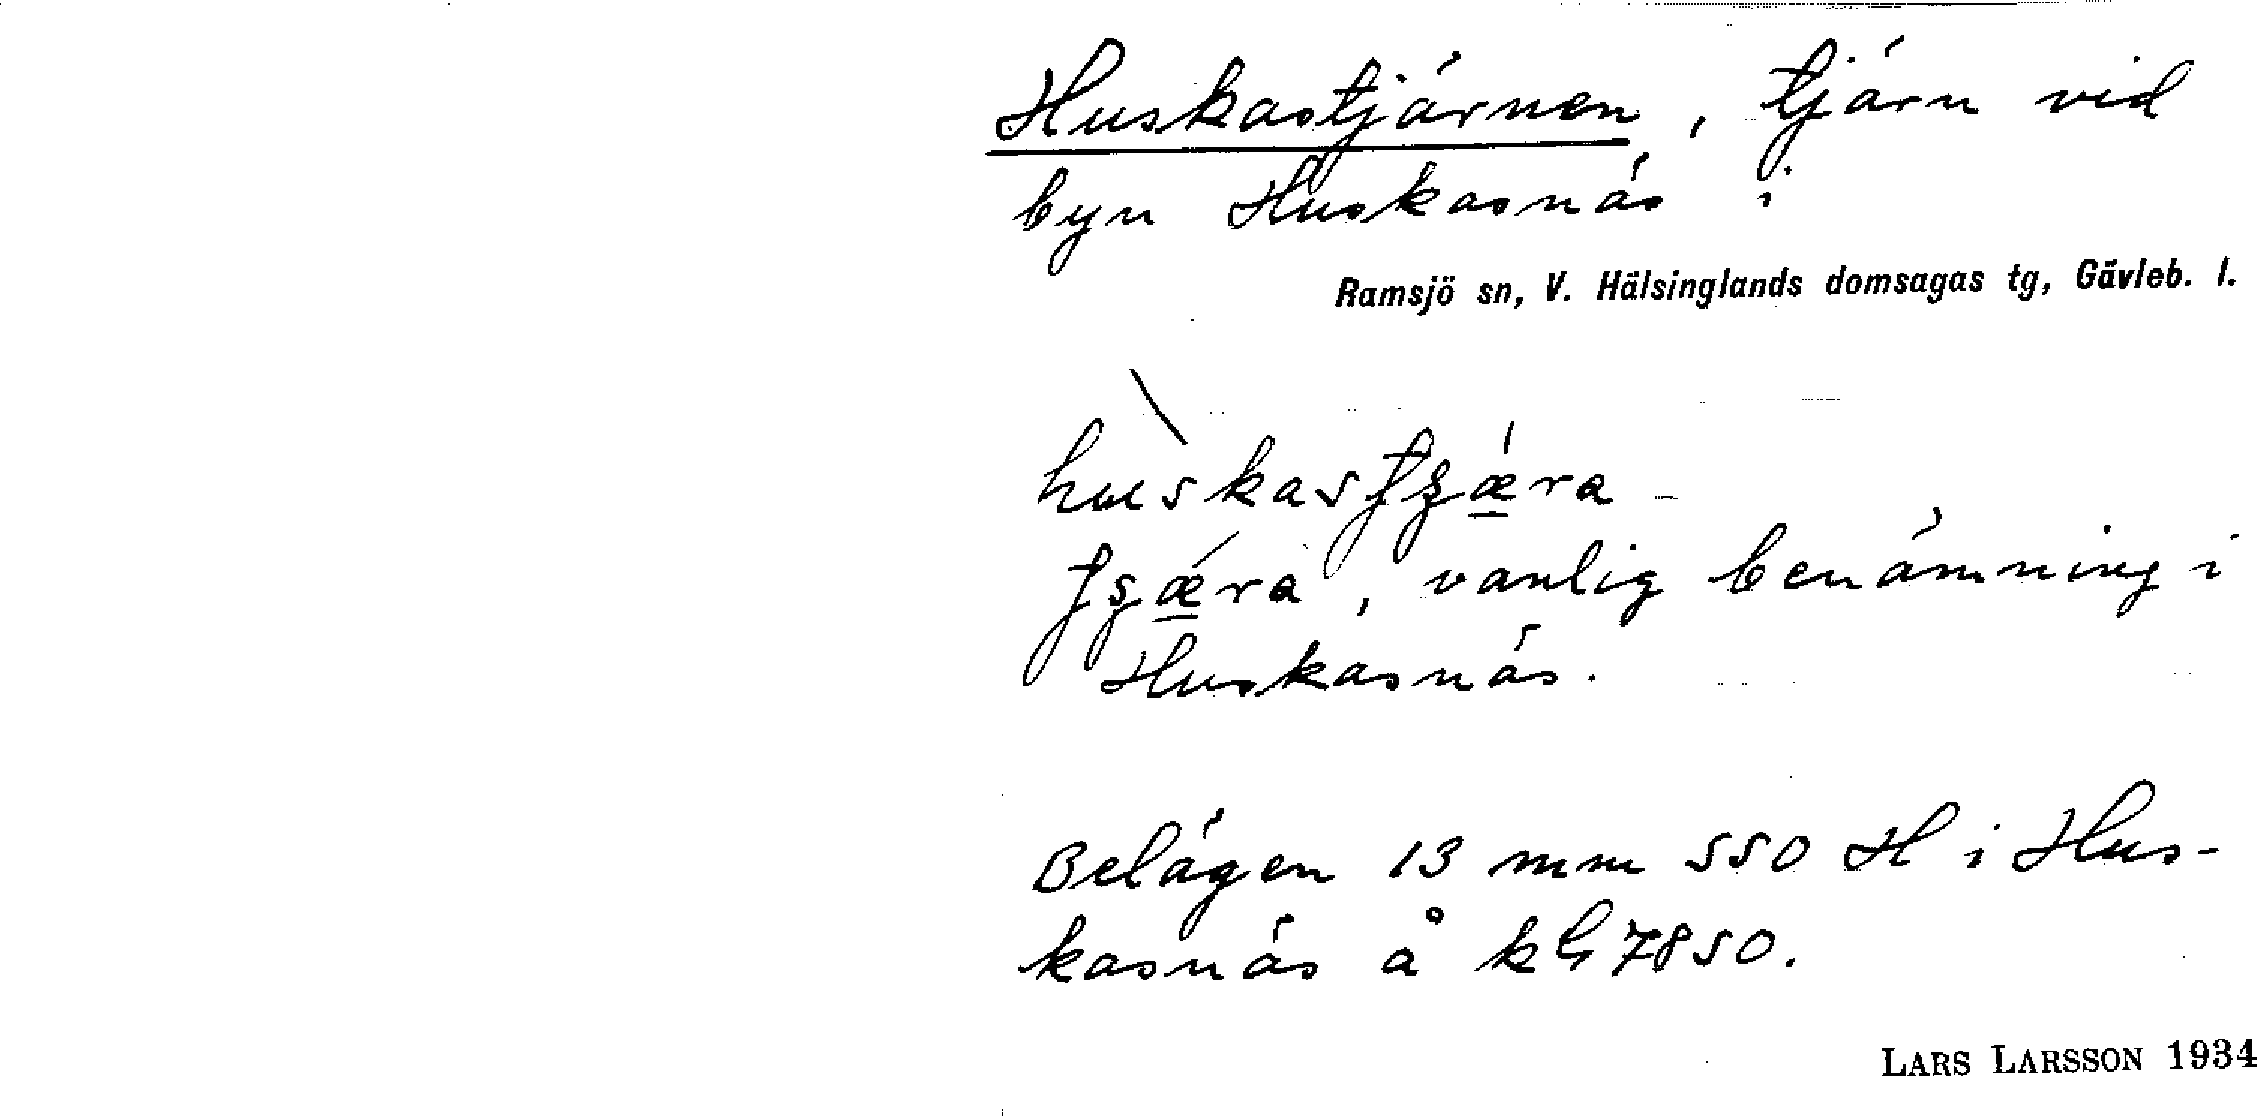 Huskastjärnen, tjärn vid
byn Huskasnäs i
Ramsjö sn, V. Hälsinglands domsagas tg, Gävleb. l.
vanlig benämning i
Huskasnäs.
Belägen 13 mm SSO H i Hus-
kasnäs å kbl 7850.
LARS LARSSON 1934